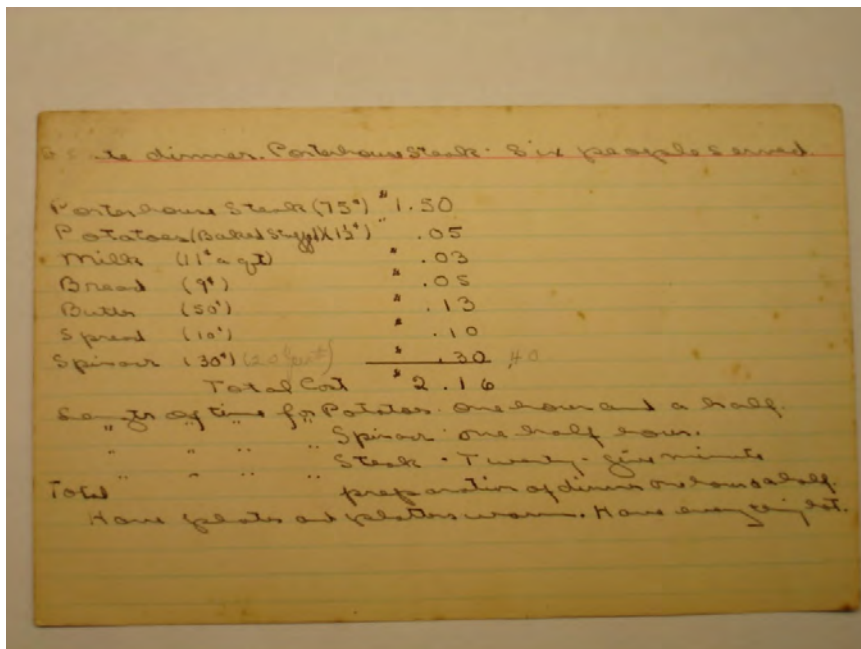 te dinner. Porterhouse Steak. Six people served.
Porterhouse Steak (75¢) " 1.50
Potatoes (Baked Stuffed) (1½¢) " .05
Milk (11¢ a qt) " .03
Bread (9¢) " .05
Butter (50¢) " .13
Spread (10¢) " .10
Spinach (30¢) " .30 40
Total Cost " 2.16
Length of time for Potatoes. One hour and a half.
" " " " Spinach one half hour.
" " " " Steak - Twenty-five minute
Total preparation of dinner one hour & a half.
Have plates and platters warm. Have everything hot.